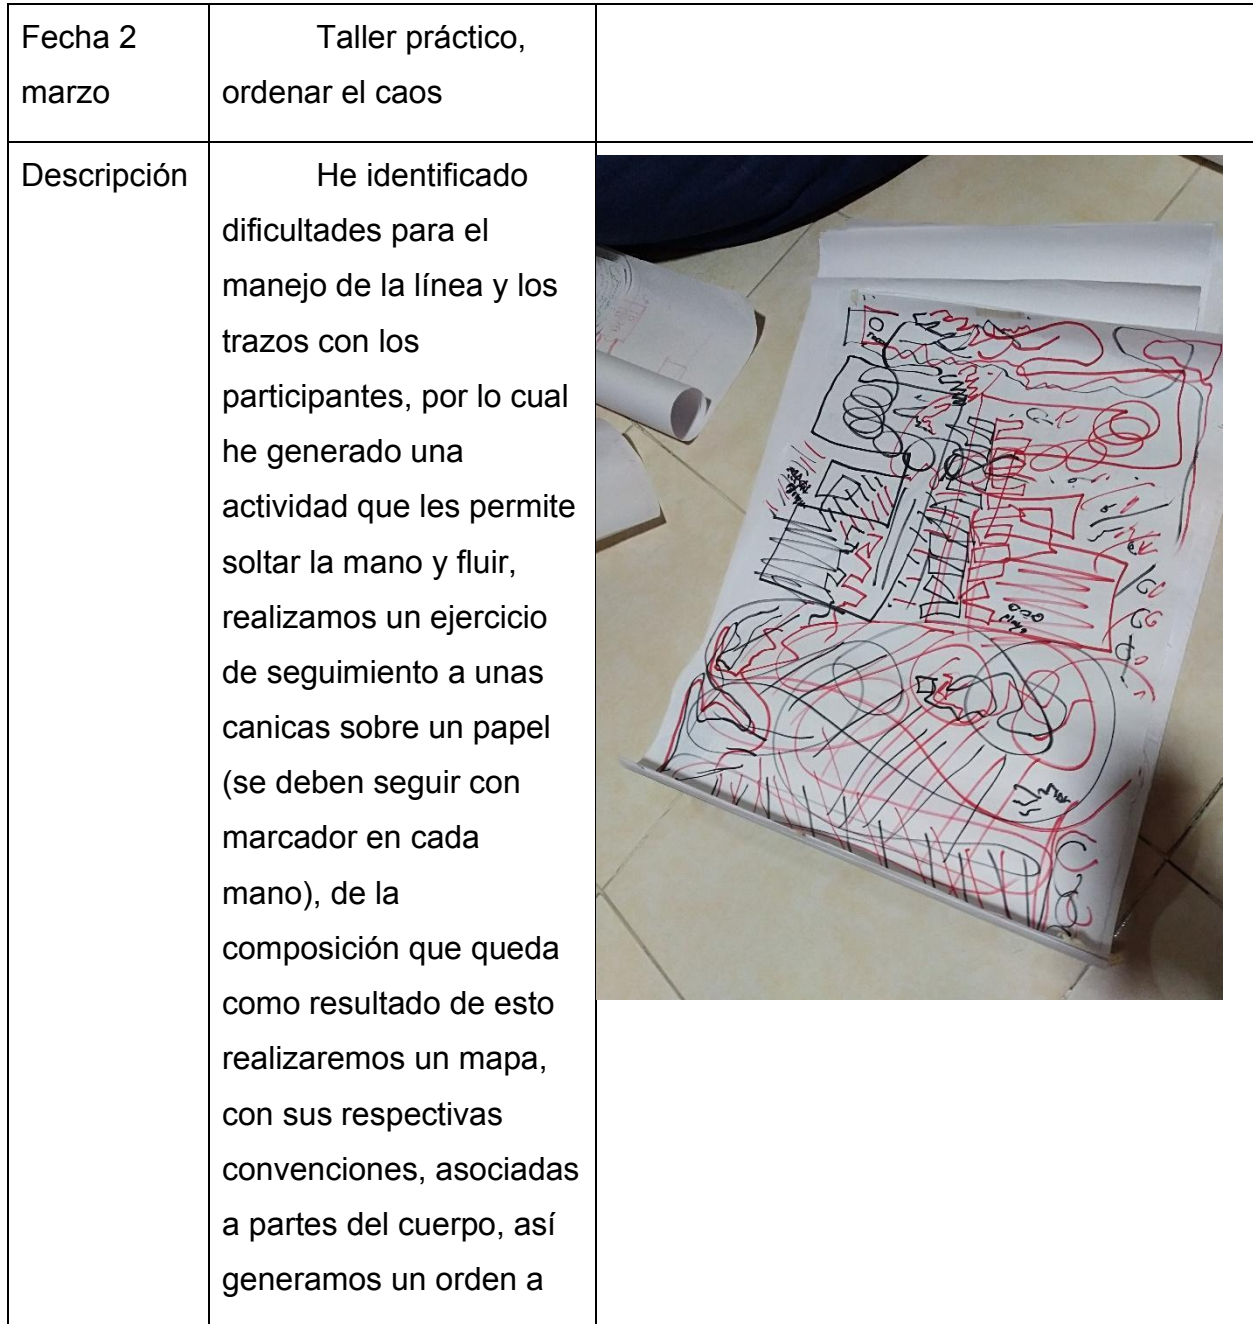 Fecha 2
marzo
Taller práctico,
ordenar el caos
Descripción
He identificado
dificultades para el
manejo de la línea y los
trazos con los
participantes, por lo cual
he generado una
actividad que les permite
soltar la mano y fluir,
realizamos un ejercicio
de seguimiento a unas
canicas sobre un papel
(se deben seguir con
marcador en cada
mano), de la
composición que queda
como resultado de esto
realizaremos un mapa,
con sus respectivas
convenciones, asociadas
a partes del cuerpo, así
generamos un orden a